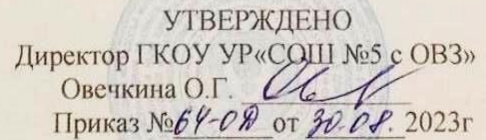 УТВЕРЖДЕНО
Директор ГКОУ УР«СОШ №5 с ОВЗ»
Овечкина О.Г.
Приказ №64-ОД от 30.08. 2023г